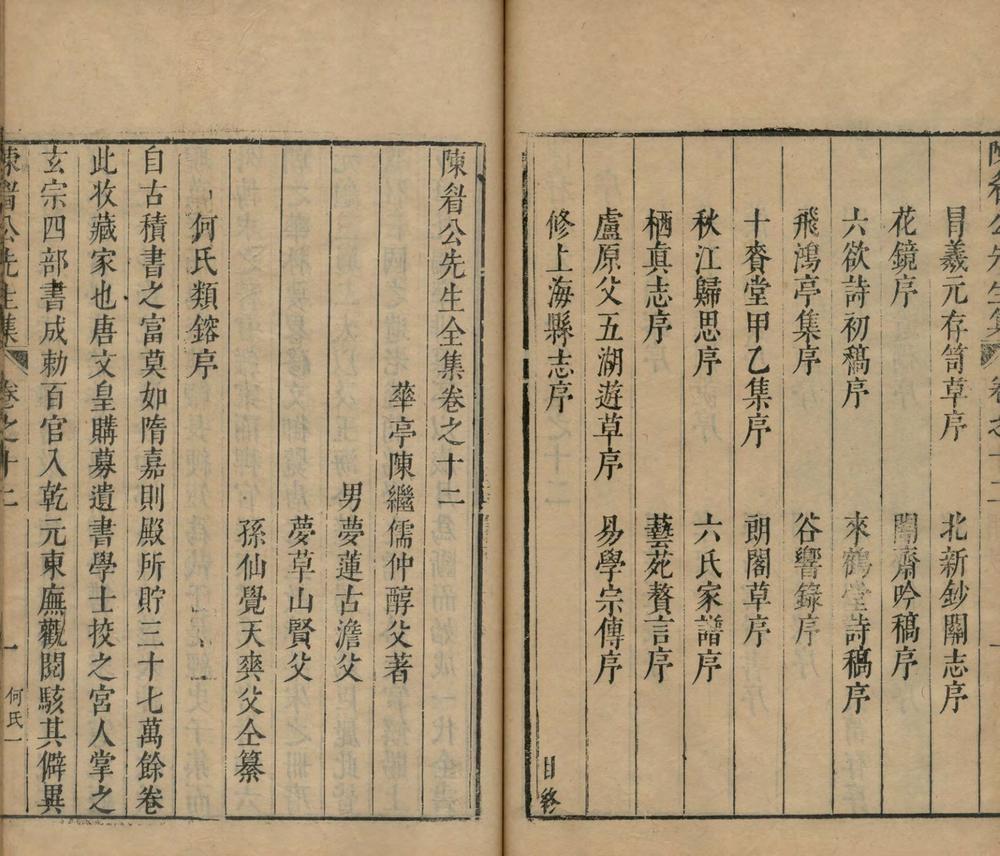 陳眉公先生集 卷之十二
冐羲元存笥草序 北新鈔關志序
花鏡序 闇齋吟稿序
六欲詩初稿序 來鶴堂詩稿序
飛鴻亭集序 谷響錄序
十賚堂甲乙集序 朗閣草序
秋江歸思序 六氏家譜序
栖真志序 藝苑贅言序
盧原父五湖遊草序 易學宗傳序
修上海縣志序
目終
陳眉公先生全集卷之十二
華亭陳繼儒仲醇父著
男夢蓮古澹父
夢草山賢父
孫仙覺天爽父仝纂
何氏類鎔序
自古積書之富莫如隋嘉則殿所貯三十七萬餘卷
此收藏家也唐文皇購募遺書學士挍之宮人掌之
玄宗四部書成勅百官入乾元東廡觀閱駭其僻異
陳眉公先生集 卷之十二 一 何氏一